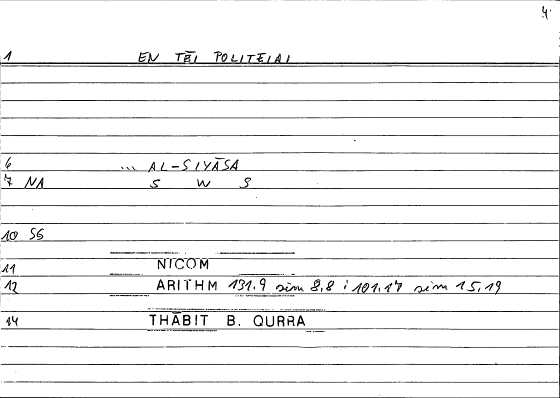 4.
1 EN TĒI POLITEIAI
6 ... AL-SIYĀSA
7 NA S W S
10 SG
11 NICOM
12 ARITHM 131.9 sim 8,8 ; 101.17 sim 15,19
14 THĀBIT B. QURRA